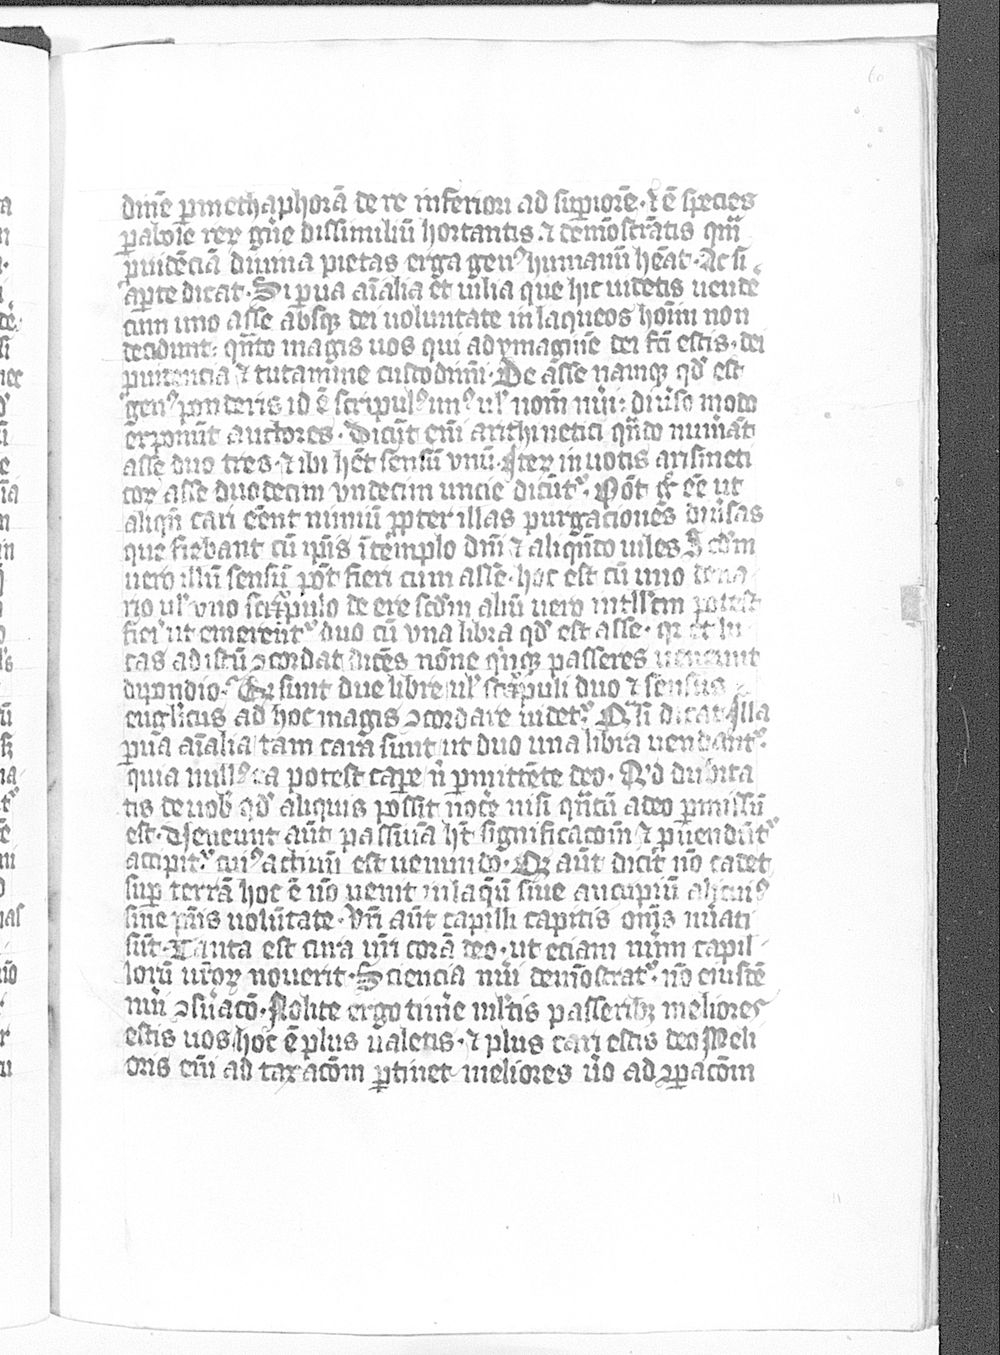 60
diuīe ꝑ methaphorā de re inferiori ad suꝑiorē · ⁊ ē species
ꝑabole rex gn̄e dissimiliū hortantis ⁊ demōstrātis qm̄
ꝓuidēciā diuina pietas erga genꝰ humanū hēat · Ac si
aꝑte dicat · Si ꝑua aīalia et uilia que hic uidetis uendē
cum uno asse absqꝫ dei uoluntate in laqueos hoīm non
decidunt : qn̄to magis uos qui ad ymaginē dei fc̄i estis · dei
ꝓuidencia ⁊ tutamine custodimī · De asse namqꝫ qd̕ est
genꝰ ponderis id ē scripulꝰ unꝰ ul̕ nom̄ nūi : diu̕so modo
exponūt auctores · Dicūt em̄ arithmetici qn̄do nūant
asse duo tres · ⁊ ibi hēt sensū vnū · Iter in uotis arismeti
coꝝ asse duodecim vndecim uncie dicūtᷣ · Pōt gͦ eē ut
aliqn̄ cari eēnt nimiū ꝓpter illas purgaciones diu̕sas
que fiebant cū ip̄is ī templo dm̄ ⁊ aliqn̄to uiles Scd̄m
uero illū sensū pōt fieri cum asse · hoc est cū uno dena
rio ul̕ vno scrͥpulo de ere scd̄m aliū uero intll̕em potest
fieri ut emerentᷣ duo cū vna libra qd̕ est asse · qr et lu
cas ad istū ꝯcordat dicēs nōne qͥnqꝫ passeres ueneunt
dipondio · Et sunt due libre ul̕ scrͥpuli duo ⁊ sensus
eugl̕icus ad hoc magis ꝯcordare uidetᷣ · Q̕si dicat · Illa
ꝑua aīalia tam cara sunt ut duo una libra uendantᷣ ·
quia nullꝰ ea potest caꝑe n̄ ꝑmittēte deo · Qͥd dubita
tis de uob̕ qd̕ aliquis possit noc̕e nisi qn̄tū a deo ꝑmissū
est · Ueneunt aūt passiuā hn̄t significacōm ⁊ ꝓ uendūtᷣ
accipitᷣ cuiꝰ actiuū est uenundo · Qr aūt dicit nō cadet
suꝑ terrā hoc ē nō uenit in laqū siue aucupiū alicuiꝰ
sine pr̄is uolūtate · Vr̄i aūt capilli capitis om̄s nūati
sūt · Tanta est cura ur̄i corā deo · ut eciam nūm capil
lorū ur̄oꝝ nouerit · Sciencia nūi demōstratᷣ nō eiusdē
nūi ꝯsuācō · Nolite ergo tim̄e ml̕tis passeribꝫ meliores
estis uos hoc ē plus ualetis · ⁊ plus cari estis deo Meli
oris em̄ ad taxacōm ꝑtinet meliores u̕o ad ꝯꝑacōm